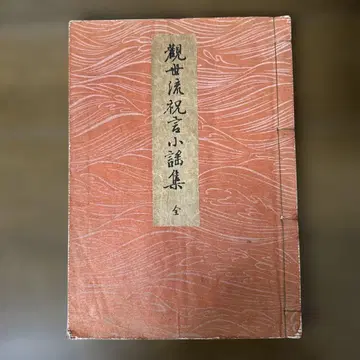 觀世流祝言小謡集
全